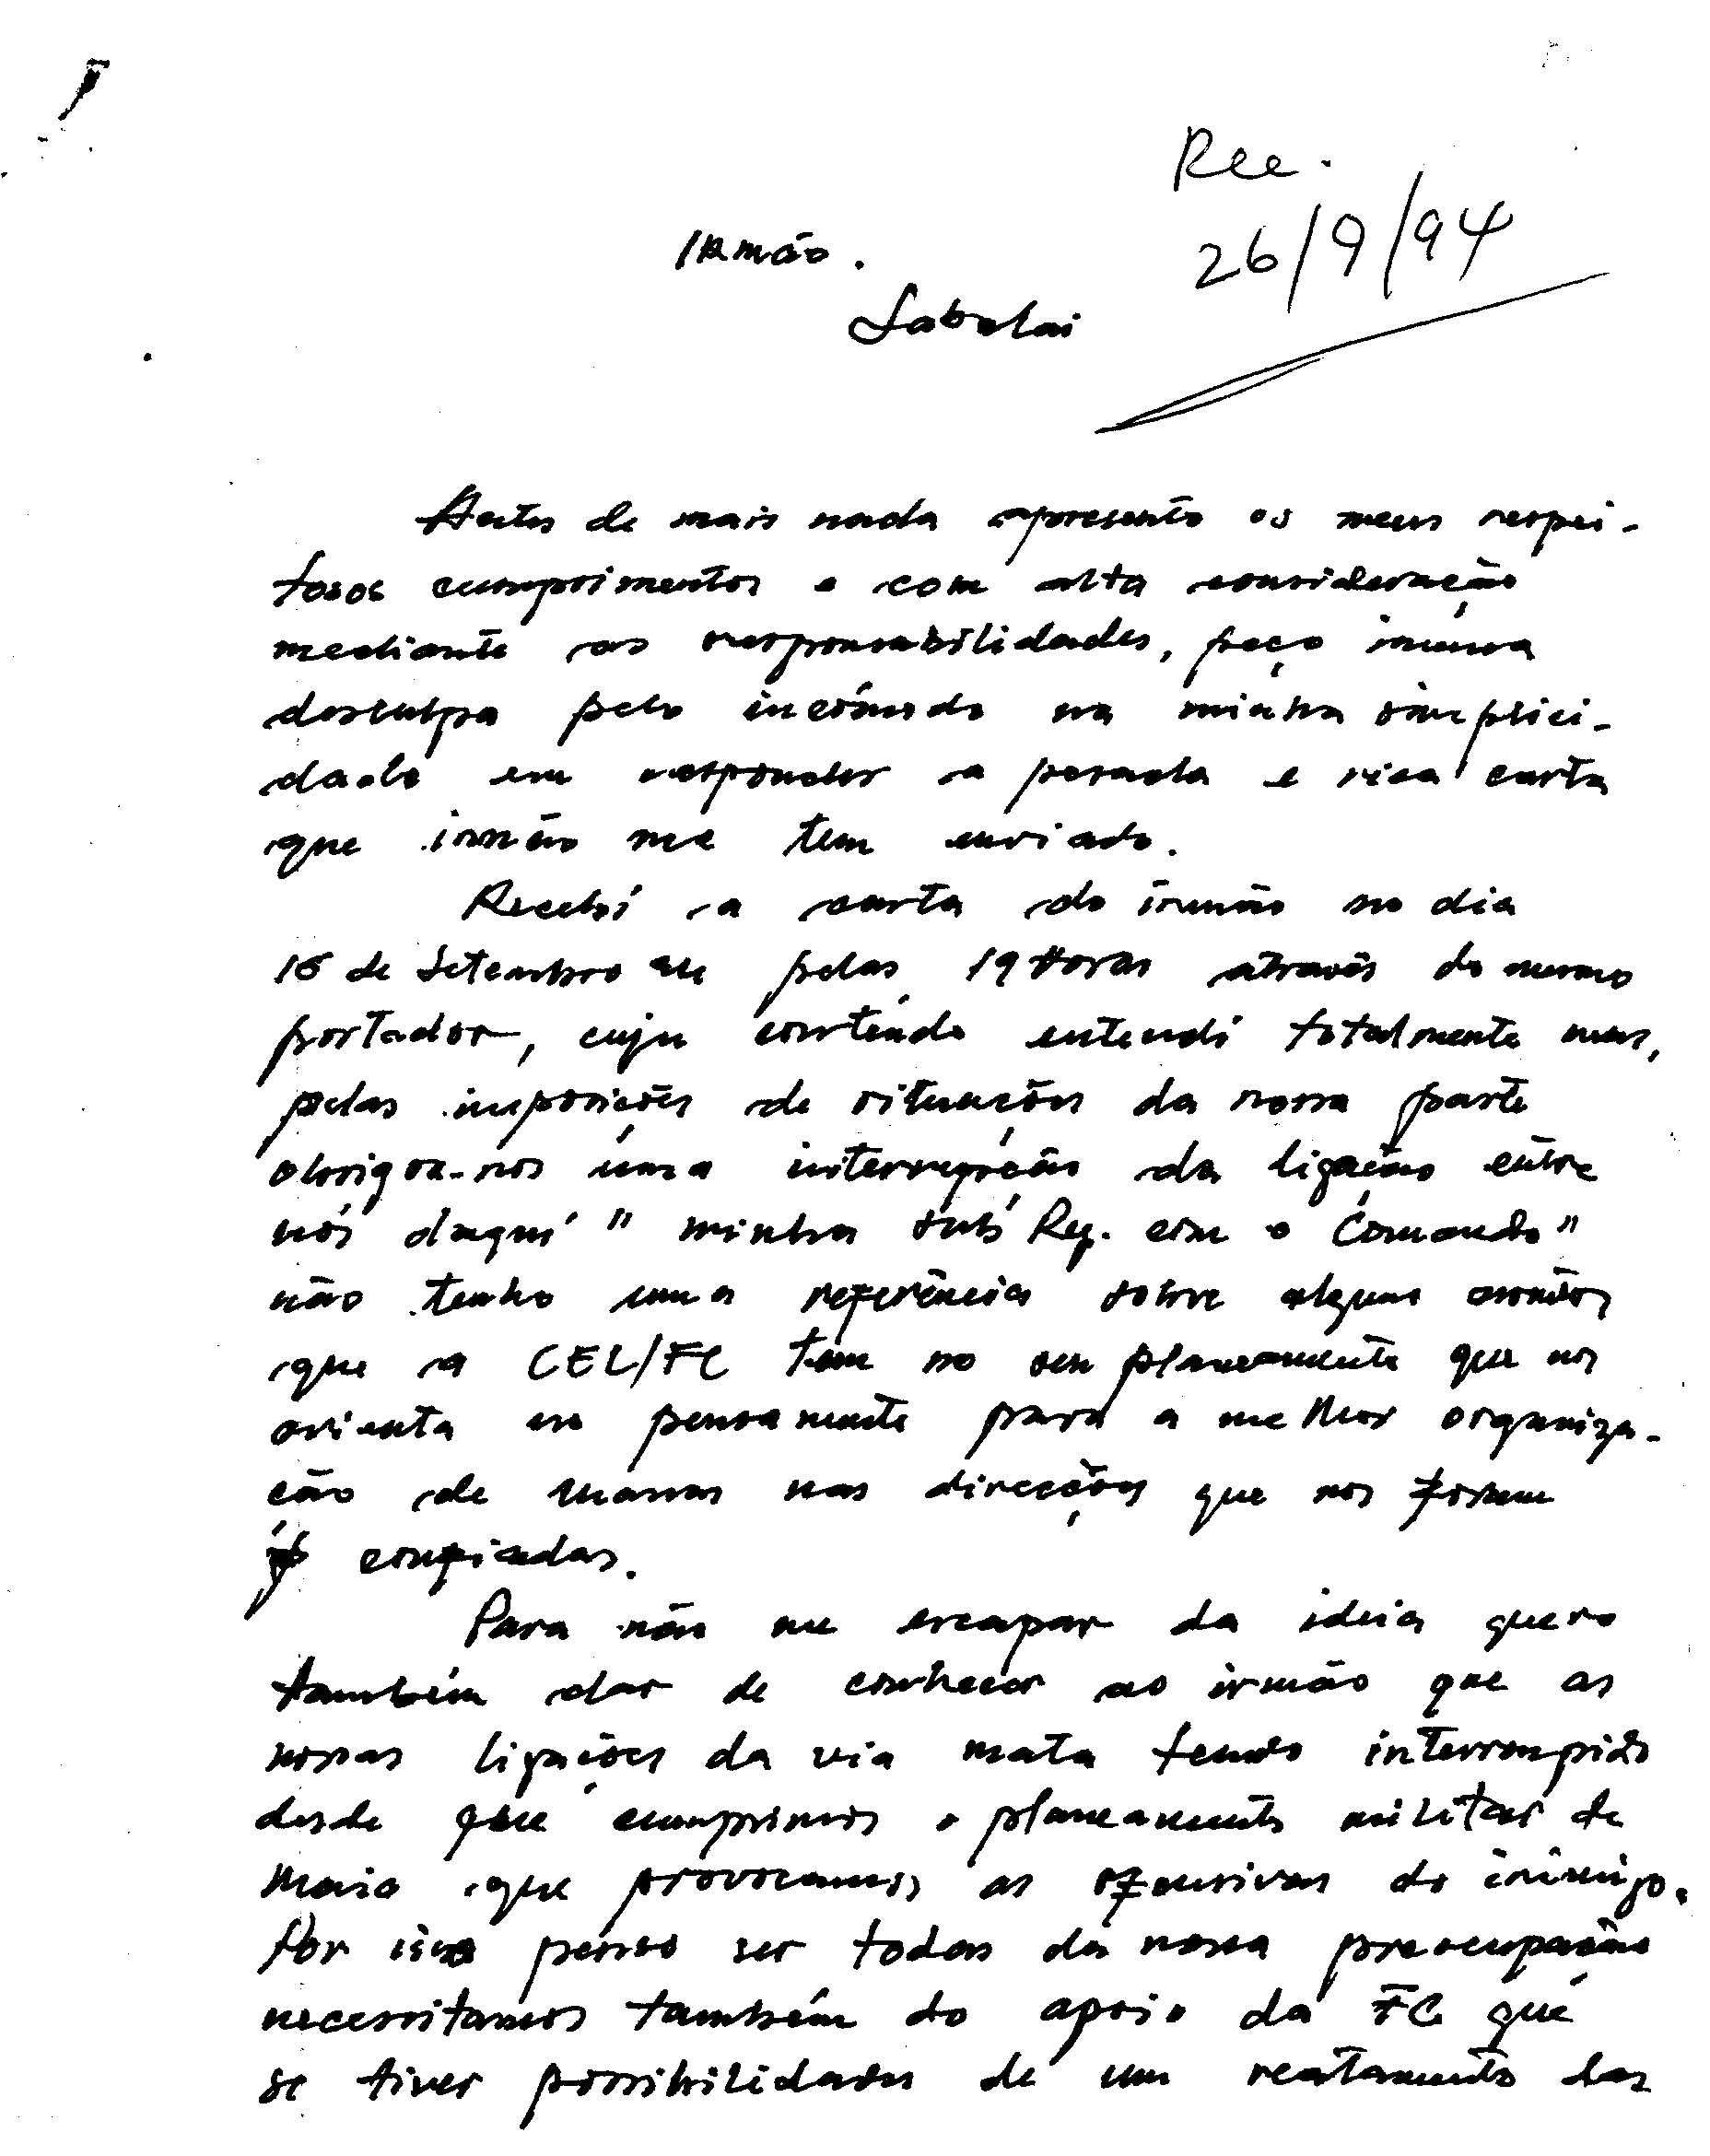 Rec.
26/9/94
Irmão.
Sabalai
Antes de mais nada apresento os meus respei-
tosos cumprimentos e com alta consideração
mediante as responsabilidades, peço imensa
desculpa pelo incómodo na minha simplici-
dade em responder a pesada e rica carta
que irmão me tem enviado.
Recebí a carta do irmão no dia
16 de Setembro pelas 19 Horas através do mesmo
portador, cuju conteúdo entendí totalmente mas,
pelas imposições de situações da nossa parte
obrigou-nos uma interrupção da ligação entre
nós daquí "minha sub Reg. com o Comando"
não tenho uma referência sobre alguns assuntos
que a CEL/FC tem no seu planeamento que nos
orienta em pensamento para a melhor organiza-
ção de massas nas direcções que nos foram
confiadas.
Para não me escapar da ideia quero
também dar de conhecer ao irmão que as
nossas ligações da via mata tendo interrompido
desde que cumprimos o planeamento militar de
Maio que provocamos as ofensivas do inimigo.
Por isso penso ser todas da nossa preocupação
necessitamos também do apoio da FC que
se tiver possibilidades de um reatamento das